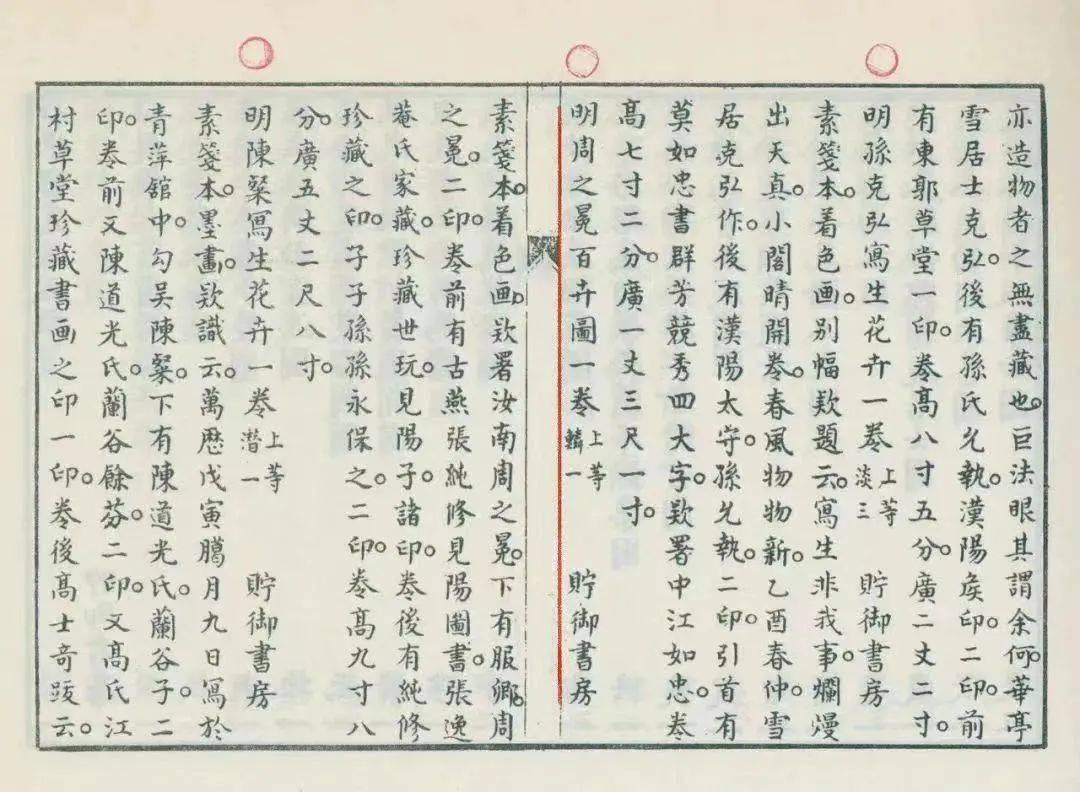 亦造物者之無盡藏也。巨法眼其謂余何。華亭
雪居士克弘。後有孫氏允執。漢陽矦印。二印。前
有東郭草堂一印。卷高八寸五分。廣二丈二寸。
明孫克弘寫生花卉一卷 上等 淡三 貯御書房
素箋本。着色画。别幅欵題云。寫生非我事。爛熳
出天真。小閣晴開卷。春風物物新。乙酉春仲。雪
居克弘作。後有漢陽太守。孫允執。二印。引首有
莫如忠書群芳競秀四大字。欵署中江如忠。卷
高七寸二分。廣一丈三尺一寸。
明周之冕百卉圖一卷 上等 轔一 貯御書房
素箋本。着色画。欵署汝南周之冕。下有服卿。周
之冕。二印。卷前有古燕張純修見陽圖書。張逸
菴氏家藏。珍藏世玩。見陽子。諸印。卷後有純修
珍藏之印。子子孫孫永保之。二印。卷高九寸八
分。廣五丈二尺八寸。
明陳粲寫生花卉一卷 上等 潛一 貯御書房
素箋本。墨畫。欵識云。萬歷戊寅臈月九日寫於
青萍舘中。勾吳陳粲。下有陳道光氏。蘭谷子。二
印。卷前又陳道光氏。蘭谷餘芬。二印。又高氏江
村草堂珍藏書画之印一印。卷後高士奇跋云。